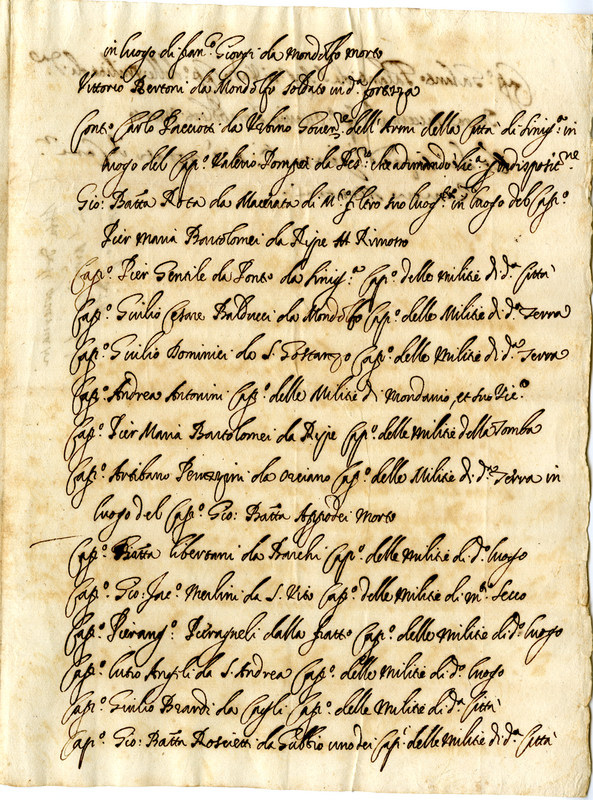 in luogo di fran.co Giorgi da Mondolfo morto
Vittorio Bertoni da Mondolfo soldato in d.a fortezza
Conte Carlo Pacciotti da Urbino Gover.re dell'Armi della Città di Sinig.a in
luogo del Cap.o Valerio Pompei da Pes.o che adimandò lic.a
Gio: Batta Rota da Macerata di suo luog.te in luogo del Cap.o
Pier Maria Bartolomei da Ripe
Cap.o Pier Gentile da Ponte da Sinig.a Cap.o delle Militie di d.a Città
Cap.o Giulio Cesare Balducci da Mondolfo Cap.o delle Militie di d.a Terra
Cap.o Giulio Dominici da S. Gostanzo Cap.o delle Militie di d.a Terra
Cap.o Andrea Antonini Cap.o delle Militie di Mondavio, et suo Vic.o
Cap.o Pier Maria Bartolomei da Ripe Cap.o delle Militie della Tomba
Cap.o Artibano da Orciano Cap.o delle Militie di d.a Terra in
luogo del Cap.o Gio: Batta morto
Cap.o Batta Libertani da Barchi Cap.o delle Militie di d.o luogo
Cap.o Gio: Jac.o Merlini da S. Vito Cap.o delle Militie di m.te Secco
Cap.o Pierang.o Pieragneli dalla fratta Cap.o delle Militie di d.o luogo
Cap.o Lutio Angeli da S. Andrea Cap.o delle Militie di d.o luogo
Cap.o Giulio Berardi da Cagli Cap.o delle Militie di d.a Città
Cap.o Gio: Batta Roscietti da Gubbio uno dei Cap.i delle Militie di d.a Città